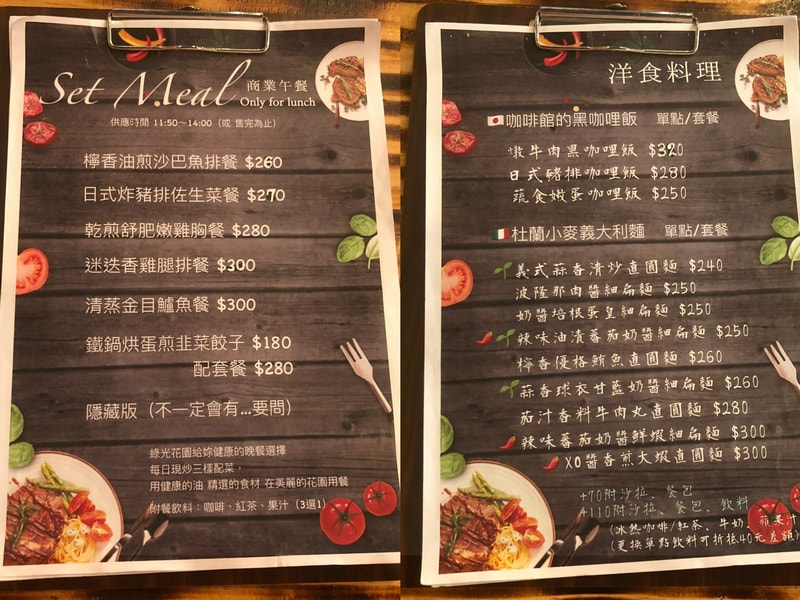 Set Meal 商業午餐
Only for lunch
供應時間 11:50～14:00（或 售完為止）
檸香油煎沙巴魚排餐 $260
日式炸豬排佐生菜餐 $270
乾煎舒肥嫩雞胸餐 $280
迷迭香雞腿排餐 $300
清蒸金目鱸魚餐 $300
鐵鍋烘蛋煎韭菜餃子 $180
配套餐 $280
隱藏版（不一定會有...要問）
綠光花園給妳健康的晚餐選擇
每日現炒三樣配菜,
用健康的油 精選的食材 在美麗的花園用餐
附餐飲料：咖啡、紅茶、果汁（3選1）
洋食料理
咖啡館的黑咖哩飯 單點/套餐
燉牛肉黑咖哩飯 $320
日式豬排咖哩飯 $280
蔬食嫩蛋咖哩飯 $250
杜蘭小麥義大利麵 單點/套餐
義式蒜香清炒直圓麵 $240
波隆那肉醬細扁麵 $250
奶醬培根蛋皇細扁麵 $250
辣味油漬蕃茄奶醬細扁麵 $250
檸香優格鮪魚直圓麵 $260
蒜香球衣甘藍奶醬細扁麵 $260
茄汁香料牛肉丸直圓麵 $280
辣味蕃茄奶醬鮮蝦細扁麵 $300
XO醬香煎大蝦直圓麵 $300
+70附沙拉、餐包
+110附沙拉、餐包、飲料
(冰熱咖啡/紅茶、牛奶、蘋果汁
(更換單點飲料可折抵40元差額)